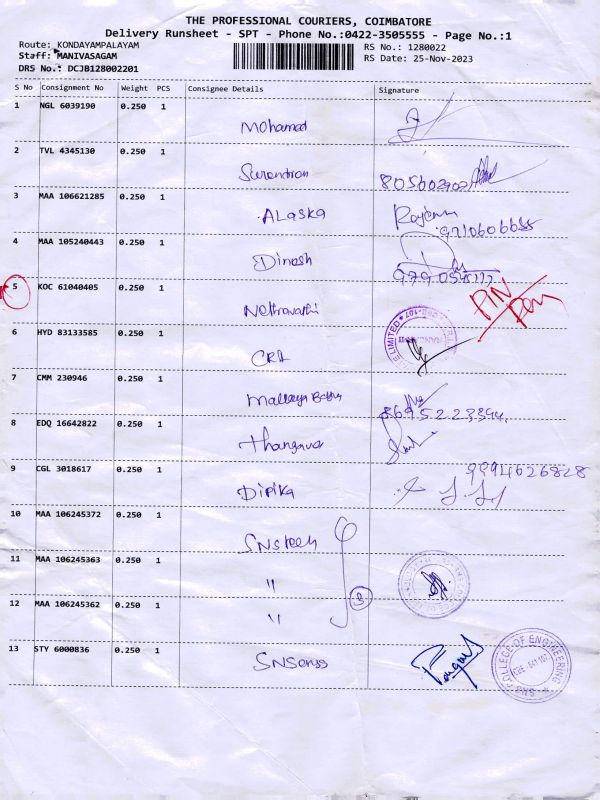 THE PROFESSIONAL COURIERS, COIMBATORE
Delivery Runsheet - SPT - Phone No.:0422-3505555 - Page No.:1
Route: KONDAYAMPALAYAM
Staff: MANIVASAGAM
DRS No.: DCJB128002201
RS No.: 1280022
RS Date: 25-Nov-2023
S No Consignment No Weight PCS Consignee Details Signature
1 NGL 6039190 0.250 1
Mohamed
2 TVL 4345130 0.250 1
Surendran
3 MAA 106621285 0.250 1
ALASKA
9710606655
4 MAA 105240443 0.250 1
Dinesh
5 KOC 61040405 0.250 1
PIN
6 HYD 83133585 0.250 1
LIMITED
7 CMM 230946 0.250 1
8695223394
8 EDQ 16642822 0.250 1
9 CGL 3018617 0.250 1
9994626828
Dipika
10 MAA 106245372 0.250 1
11 MAA 106245363 0.250 1
"
12 MAA 106245362 0.250 1
"
3
13 STY 6000836 0.250 1
COLLEGE OF ENGINEERING
SNS